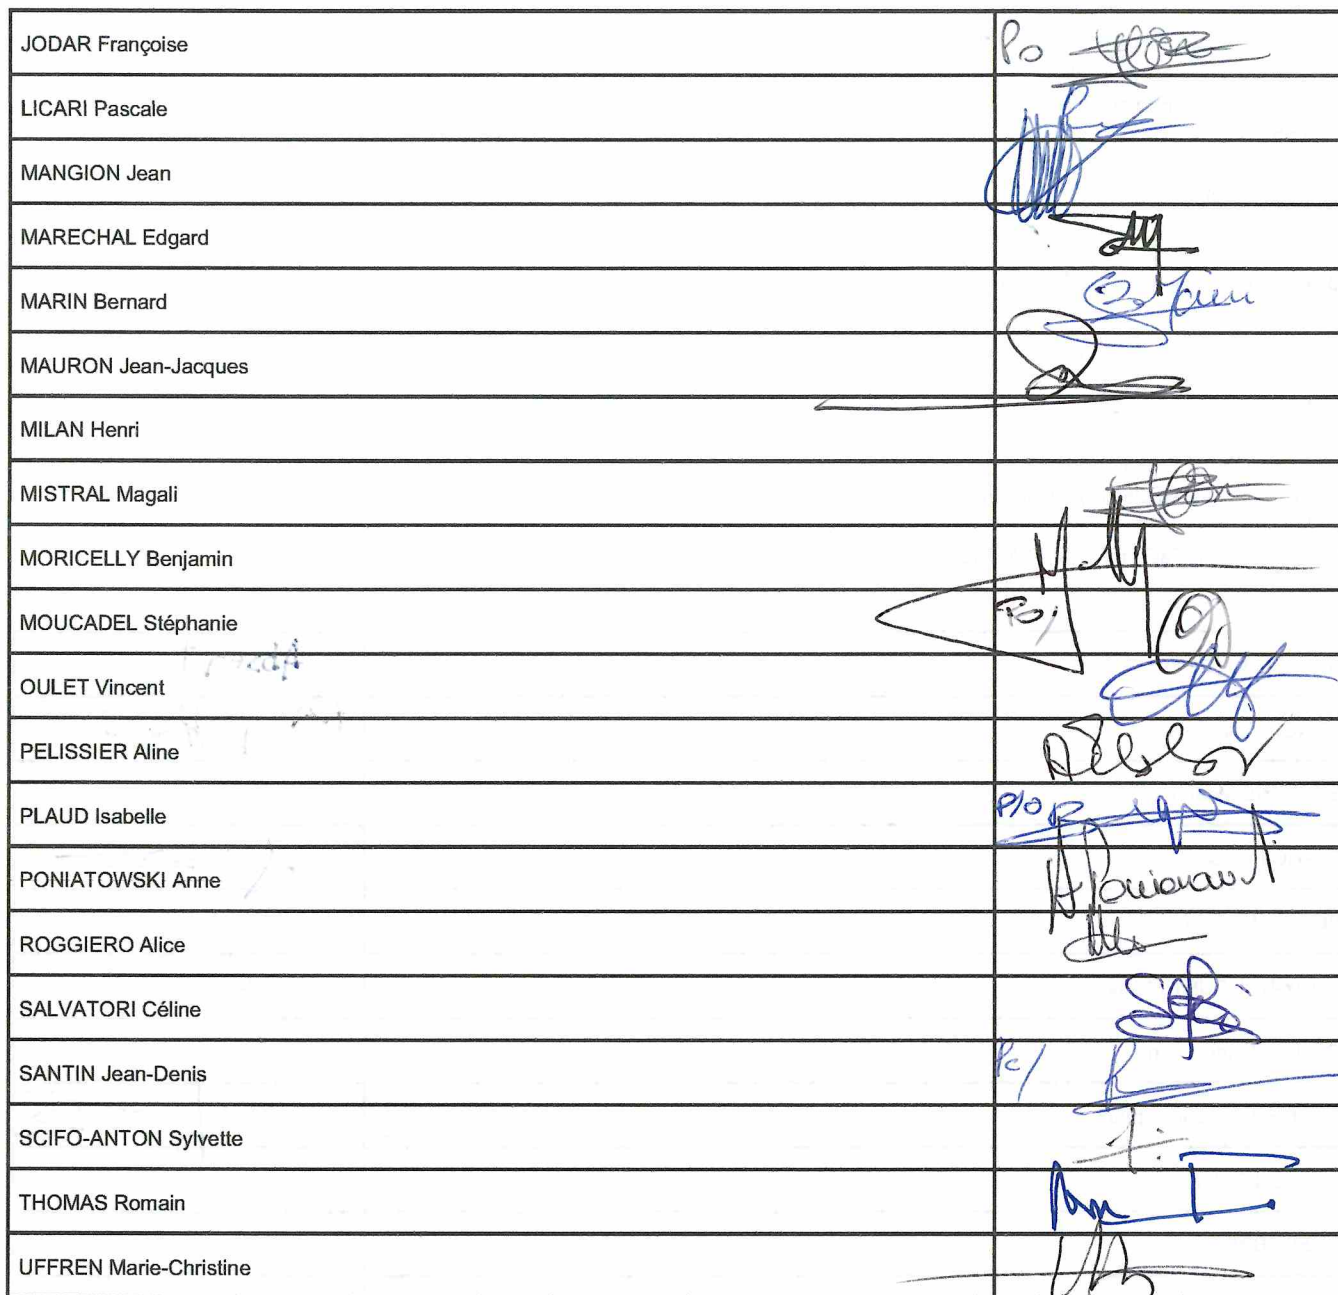 JODAR Françoise Po
LICARI Pascale
MANGION Jean
MARECHAL Edgard
MARIN Bernard
MAURON Jean-Jacques
MILAN Henri
MISTRAL Magali
MORICELLY Benjamin
MOUCADEL Stéphanie Po/
OULET Vincent
PELISSIER Aline
PLAUD Isabelle P/O
PONIATOWSKI Anne
ROGGIERO Alice
SALVATORI Céline
SANTIN Jean-Denis Po/
SCIFO-ANTON Sylvette
THOMAS Romain
UFFREN Marie-Christine